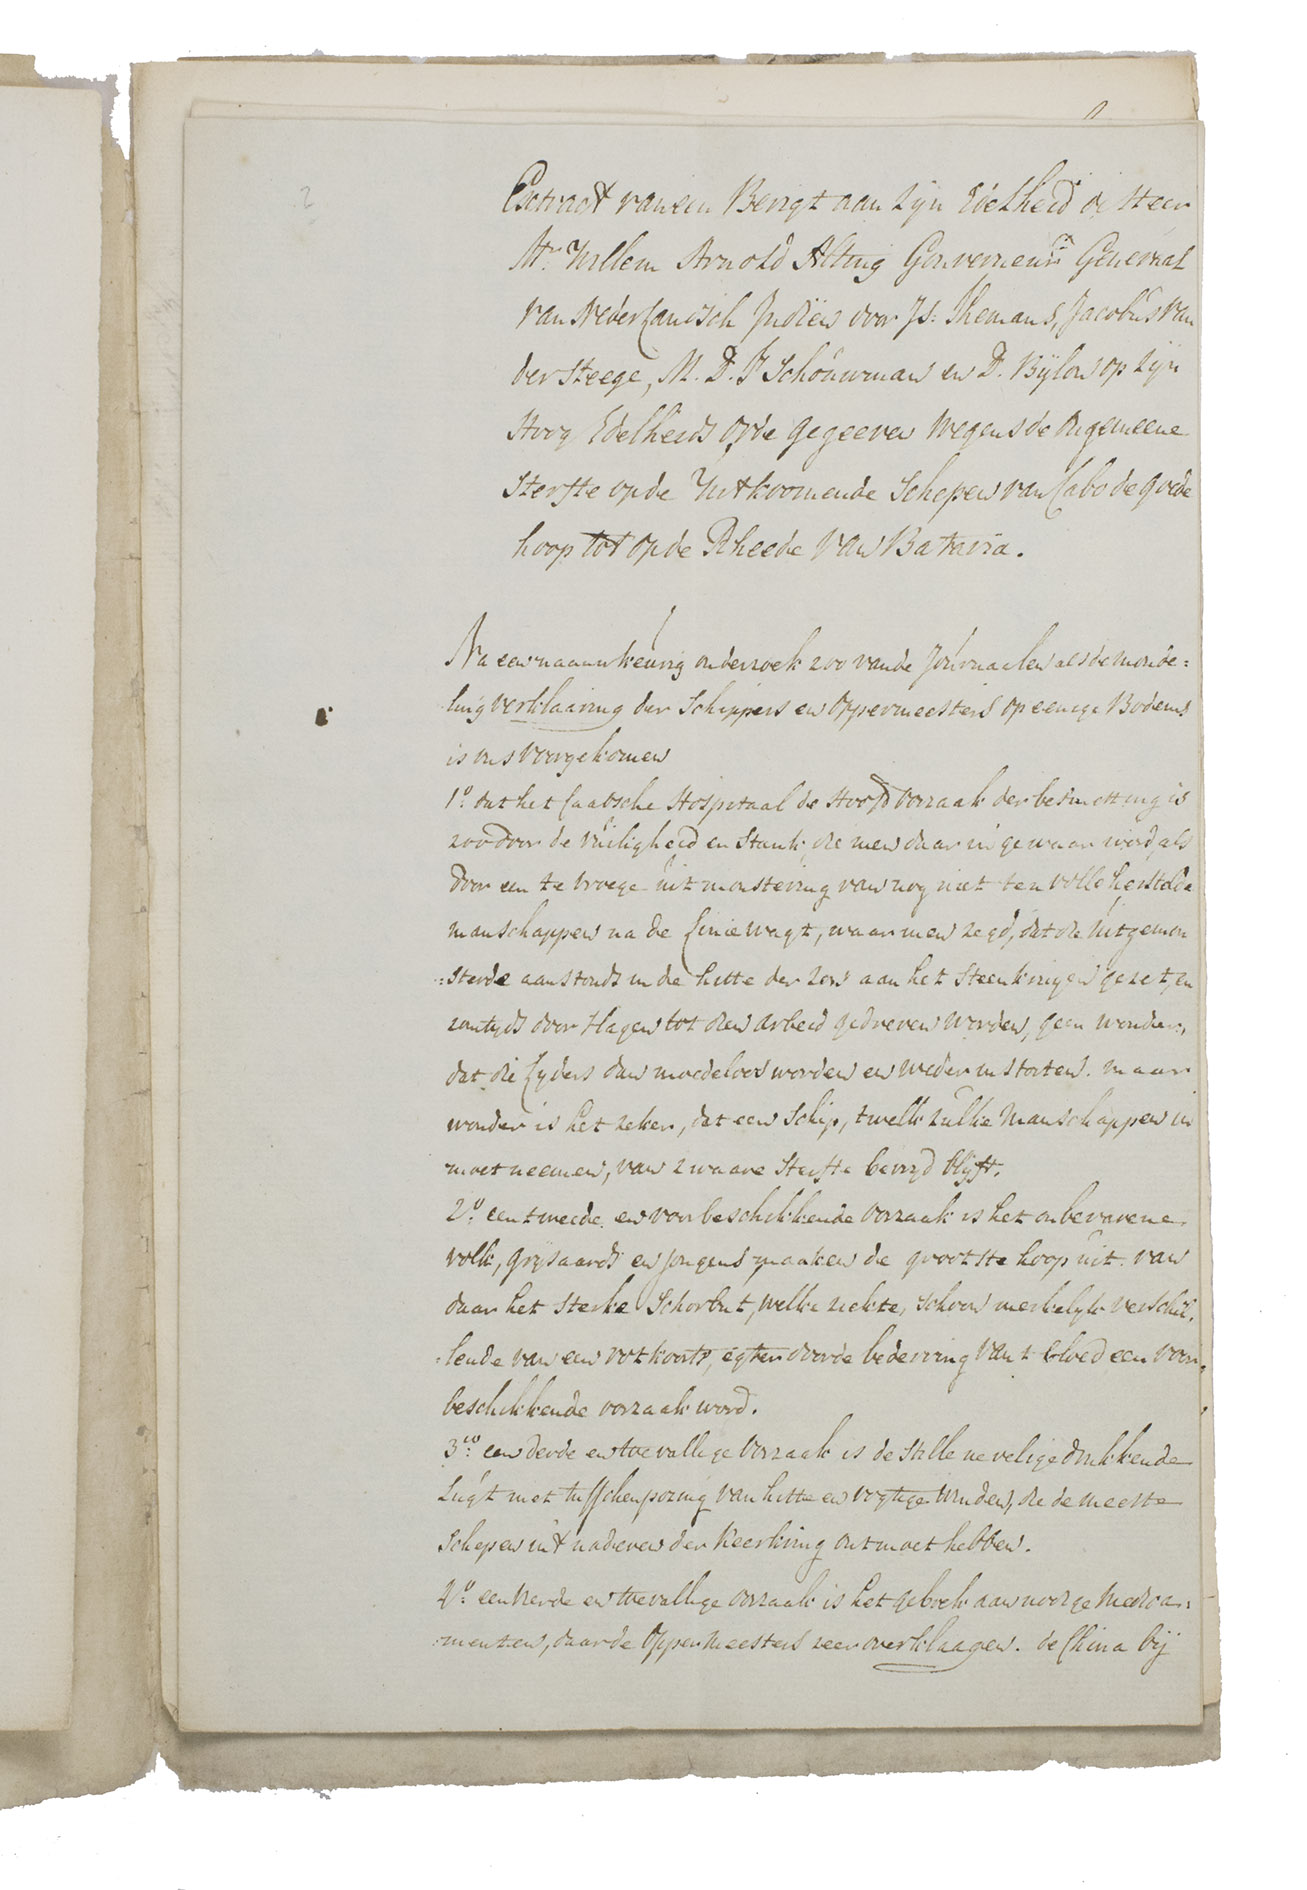 2
Extract van een Berigt aan zijn Edelheid de Heer
Mr. Willem Arnold Alting Gouverneur Generaal
van Nederlandsch Indiën door Js. Themans, Jacobus van
der Steege, M. D. F Schouwman en D. Bylon op zijn
Hoog Edelheids Orde gegeeven wegens de ongemeene
Sterfte op de Uitkoomende Schepen van Cabo de goede
hoop tot op de Rheede van Batavia.
Na een naauwkeurig onderzoek zoo van de Journaalen als de monde=
ling verklaaring der Schippers en Oppermeesters op eenige Bodems
is ons voorgekomen
1o. dat het Caabsche Hospitaal de Hoofdoorzaak der besmetting is
zoo door de vuiligheid en Stank, die men daar in gewaar word, als
door een te vroege uitmonstering van nog niet ten volle herstelde
manschappen na de Liniewagt, waar men zegd, dat die uitgemon
=sterde aanstonds in de hitte der zon aan het Steenkruyen gezet, en
zomtyds door Slagen tot dien arbeid gedreven worden, geen wonder,
dat die Lyders dan moedeloos worden en weder instorten. maar
wonder is het zeker, dat een Schip, t welk zulke Manschappen in
moet neemen, van zwaare Sterfte bevryd blyft.
2o. een tweede en voorbeschikkende oorzaak is het onbevarene
volk, grysaards en jongens maaken de grootste hoop uit. van
daar het sterke Schorbut, welke ziekte, schoon merkelyk verschil=
=lende van een rotkoorts, egter door de bederving van t bloed een voor=
beschikkende oorzaak word.
3o. een derde en toevallige oorzaak is de Stille nevelige drukkende
Lugt met tusschenpozing van hitte en vogtige winden, die de meeste
Schepen in t naderen der Keerkring ontmoet hebben.
4o. een vierde en toevallige oorzaak is het gebrek aan nodige Medica=
=menten, daar de Oppermeesters zeer over klaagen. de China bij